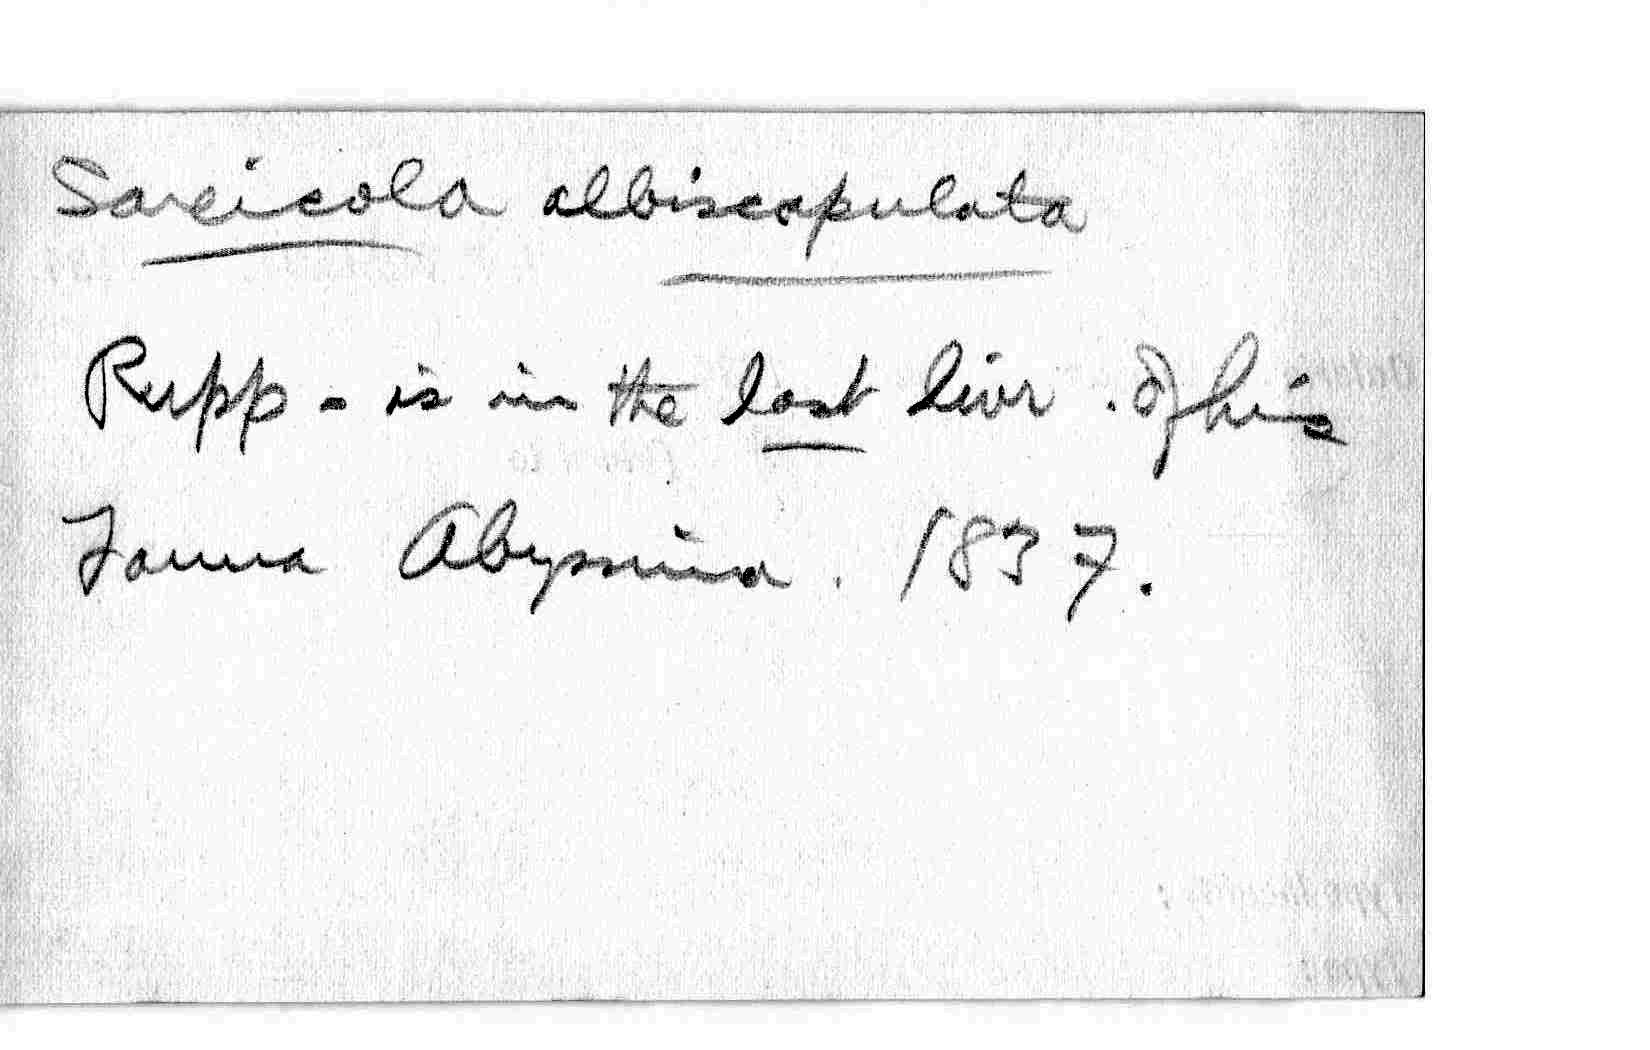 Saxicola albiscapulata
Rupp - is in the last livr. of his
Fauna Abyssinia. 1837.